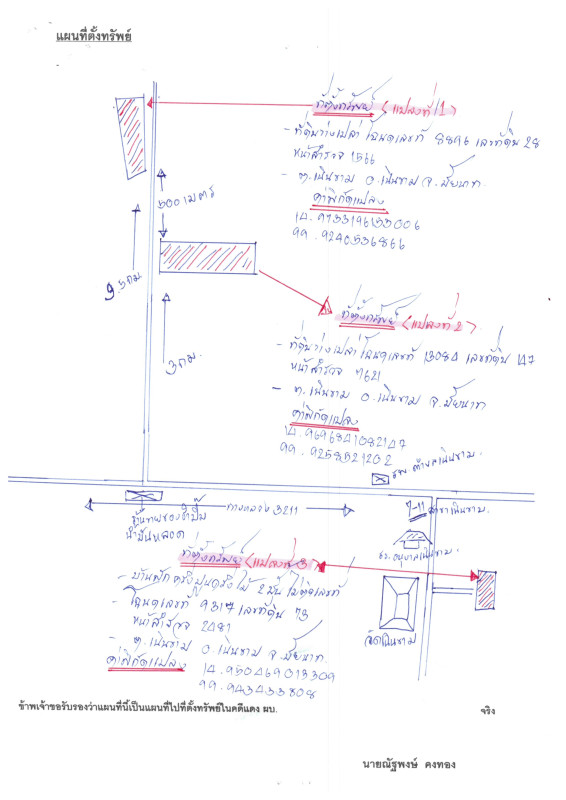 แผนที่ตั้งทรัพย์
ที่ตั้งทรัพย์ <แปลงที่ 1>
- ที่ดินว่างเปล่า โฉนดเลขที่ 8896 เลขที่ดิน 28
หน้าสำรวจ 1566
- ต.เนินขาม อ.เนินขาม จ.ชัยนาท
ค่าพิกัดแปลง
14.973319653006
99.9240536866
500 เมตร
3 กม.
ที่ตั้งทรัพย์ <แปลงที่ 2>
- ที่ดินว่างเปล่า โฉนดเลขที่ 13084 เลขที่ดิน 147
หน้าสำรวจ 7621
- ต.เนินขาม อ.เนินขาม จ.ชัยนาท
ค่าพิกัดแปลง
14.9696841082147
99.9258521202
ทางหลวง 3211
7-11 สาขาเนินขาม
น้ำมันหลอด
รร.อนุบาลเนินขาม
วัดเนินขาม
ที่ตั้งทรัพย์ <แปลงที่ 3>
- บ้านตึกครึ่งปูนครึ่งไม้ 2 ชั้น ไม่ติดเลขที่
- โฉนดเลขที่ 9317 เลขที่ดิน 73
หน้าสำรวจ 2481
- ต.เนินขาม อ.เนินขาม จ.ชัยนาท
ค่าพิกัดแปลง
14.950469013309
99.943433808
ข้าพเจ้าขอรับรองว่าแผนที่นี้เป็นแผนที่ไปที่ตั้งทรัพย์ในคดีแดง ผบ. จริง
นายณัฐพงษ์ คงทอง